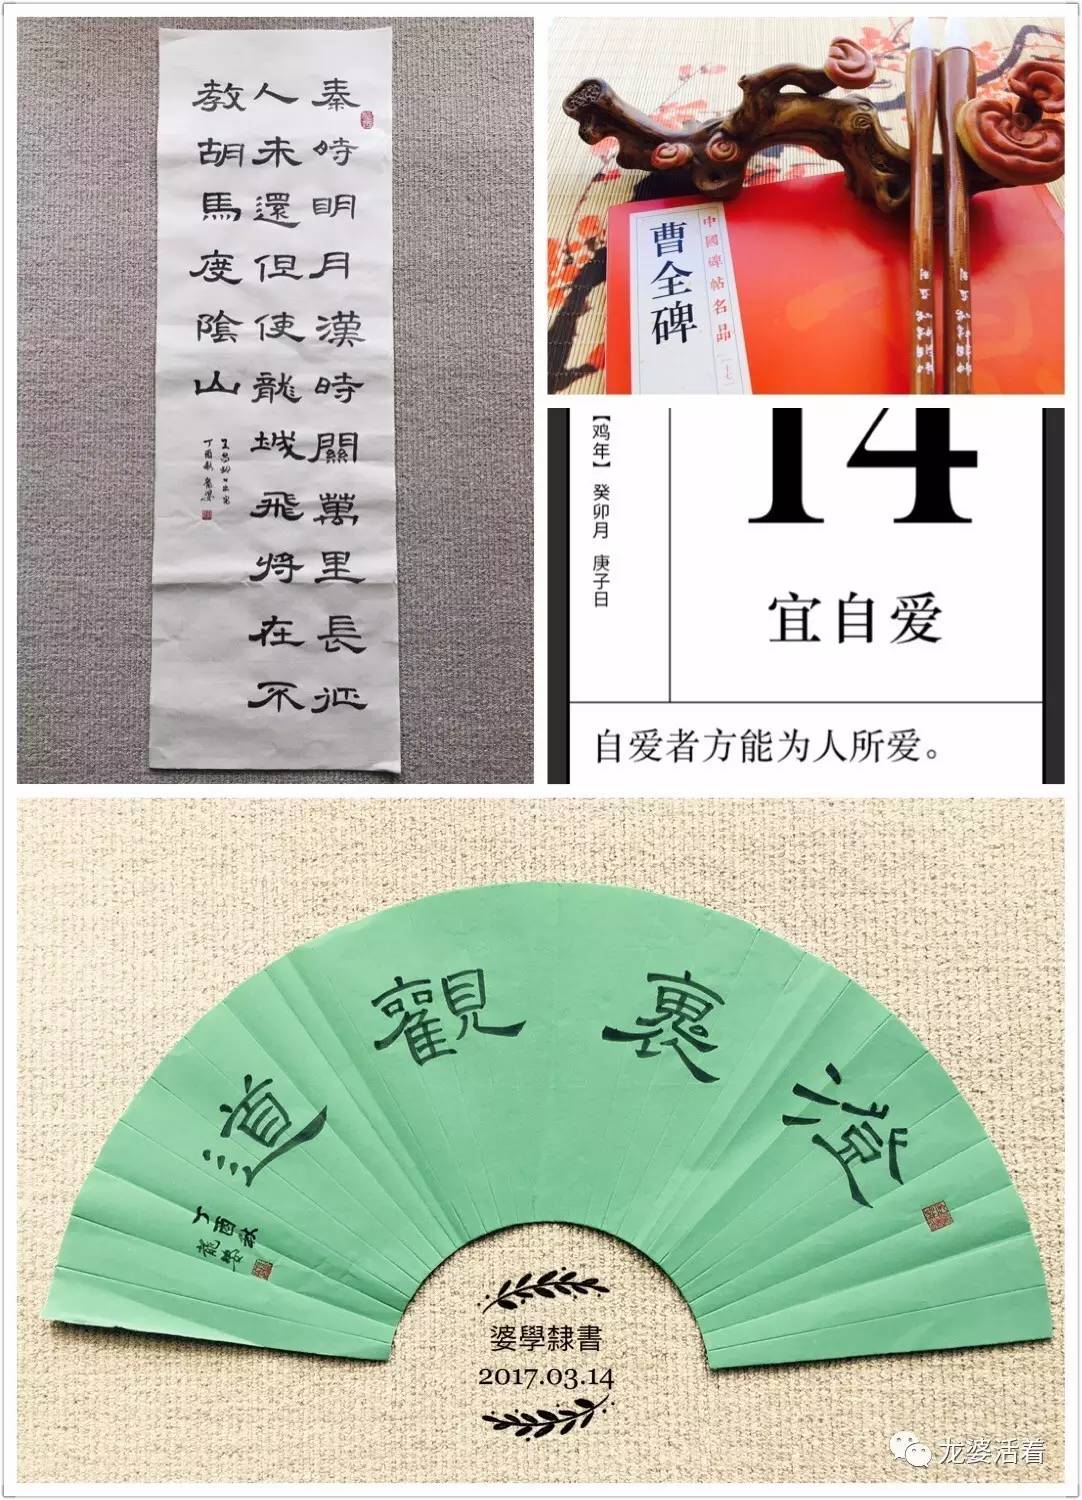 秦時明月漢時關萬里長征
人未還但使龍城飛將在不
教胡馬度陰山
丁酉秋
曹全碑
中國碑帖名品
〔十七〕
14
【鸡年】 癸卯月 庚子日
宜自爱
自爱者方能为人所爱。
澄裏觀道
丁酉秋
龍婆
婆學隸書
2017.03.14
龙婆活着